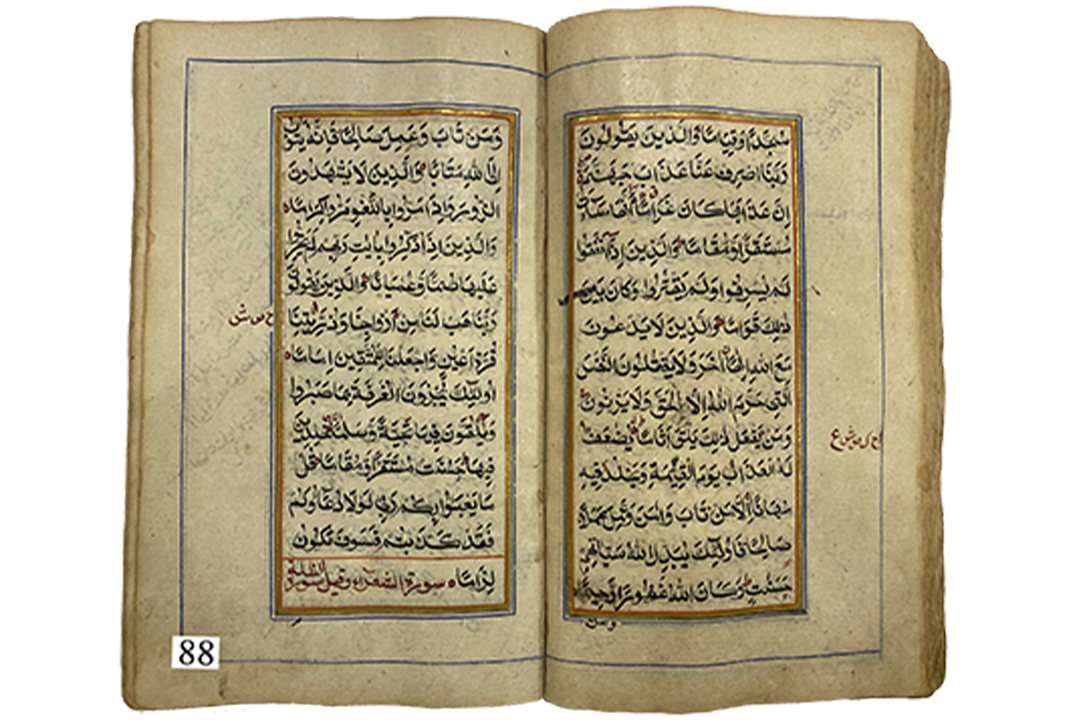 سجدا وقياما والذين يقولون
ربنا اصرف عنا عذاب جهنم
ان عذابها كان غراما انها ساءت
مستقرا ومقاما والذين اذا انفقوا
لم يسرفوا ولم يقتروا وكان بين
ذلك قواما والذين لا يدعون
مع الله الها اخر ولا يقتلون النفس
التى حرم الله الا بالحق ولا يزنون
ومن يفعل ذلك يلق اثاما يضعف
له العذاب يوم القيمة ويخلد فيه
مهانا الا من تاب وامن وعمل عملا
صالحا فاولئك يبدل الله سياتهم
حسنت وكان الله غفورا رحيما
ومن
ومن تاب وعمل صالحا فانه يتوب
الى الله متابا والذين لا يشهدون
الزور واذا مروا باللغو مروا كراما
والذين اذا ذكروا بايت ربهم لم يخروا
عليها صما وعميانا والذين يقولون
ربنا هب لنا من ازواجنا وذريتنا
قرة اعين واجعلنا للمتقين اماما
اولئك يجزون الغرفة بما صبروا
ويلقون فيها تحية وسلما خلدين
فيها حسنت مستقرا ومقاما قل
ما يعبؤا بكم ربى لولا دعاؤكم
فقد كذبتم فسوف يكون
لزاما سورة الشعراء وقيل سورة
88